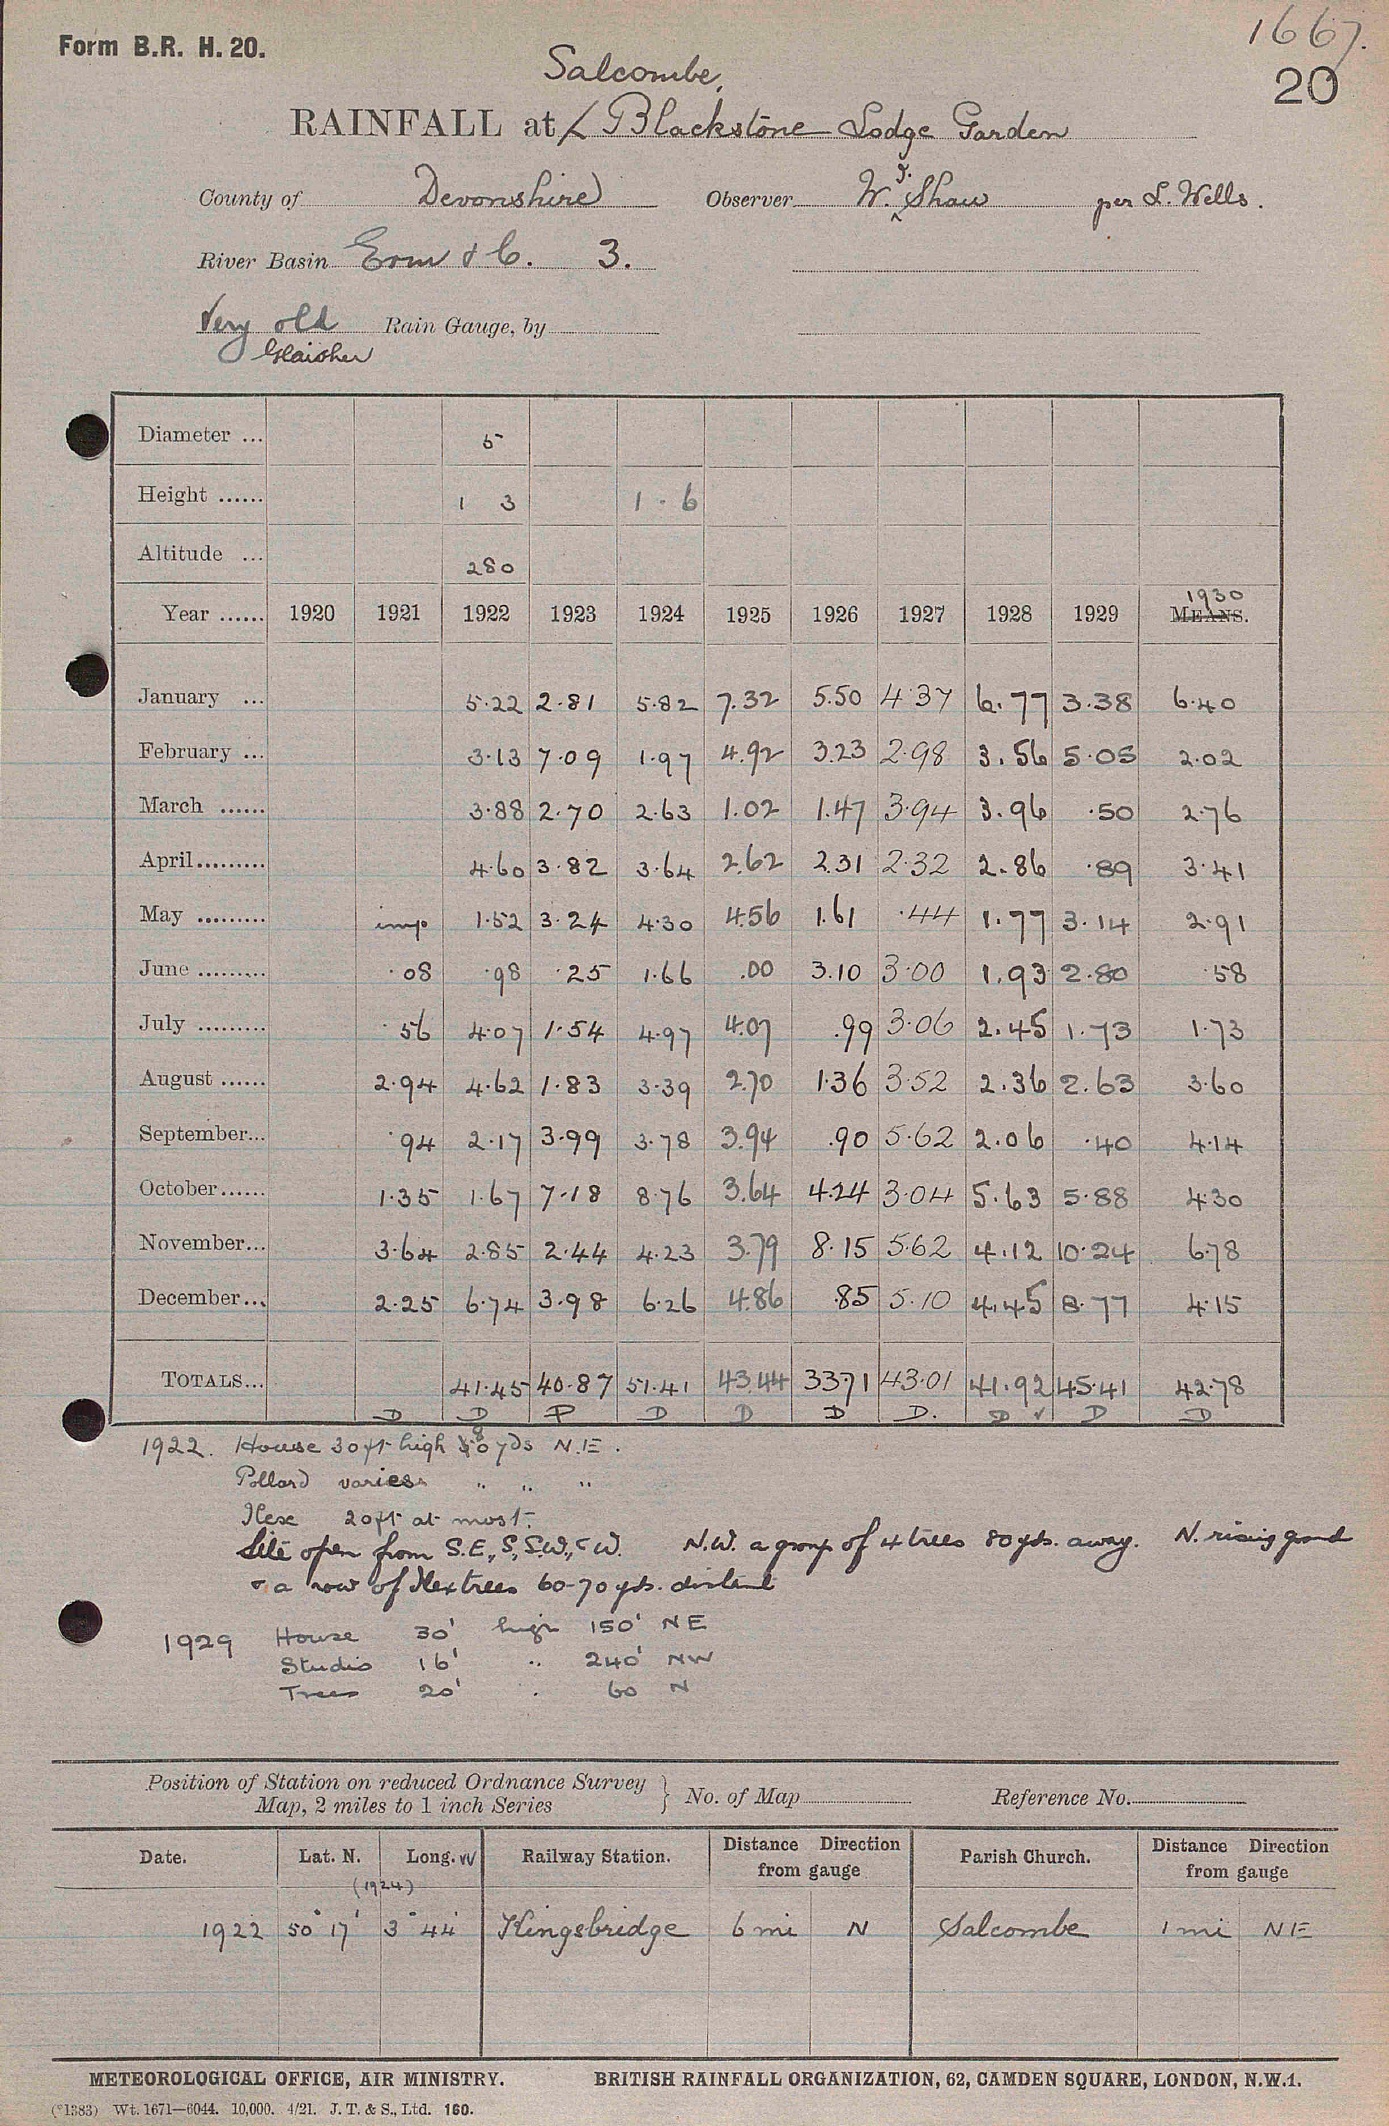 Form B.R. H. 20.
1667.
20
Salcombe,
RAINFALL at Blackstone Lodge Garden
County of Devonshire Observer W. J. Shaw per L. Wells.
River Basin Erm &c. 3.
Very old Rain Gauge, by
Glaisher
Diameter ... 5
Height ...... 1 3 1 - 6
Altitude ... 280
1930
Year ...... 1920 1921 1922 1923 1924 1925 1926 1927 1928 1929 MEANS.
January ... 5.22 2.81 5.82 7.32 5.50 4.37 6.77 3.38 6.40
February ... 3.13 7.09 1.97 4.92 3.23 2.98 3.56 5.05 2.02
March ...... 3.88 2.70 2.63 1.02 1.47 3.94 3.96 .50 2.76
April......... 4.60 3.82 3.64 2.62 2.31 2.32 2.86 .89 3.41
May ......... imp 1.52 3.24 4.30 4.56 1.61 .44 1.77 3.14 2.91
June ......... .08 .98 .25 1.66 .00 3.10 3.00 1.93 2.80 .58
July ......... .56 4.07 1.54 4.97 4.07 .99 3.06 2.45 1.73 1.73
August ...... 2.94 4.62 1.83 3.39 2.70 1.36 3.52 2.36 2.63 3.60
September... .94 2.17 3.99 3.78 3.94 .90 5.62 2.06 .40 4.14
October...... 1.35 1.67 7.18 8.76 3.64 4.24 3.04 5.63 5.88 4.30
November... 3.64 2.85 2.44 4.23 3.79 8.15 5.62 4.12 10.24 6.78
December... 2.25 6.74 3.98 6.26 4.86 .85 5.10 4.45 8.77 4.15
TOTALS... 41.45 40.87 51.41 43.44 33.71 43.01 41.92 45.41 42.78
D D D D D D D. D ✓ D D
1922. House 30ft high 80 yds N.E.
Pollard varies " " "
Ilexe 20ft at most.
Site open from S.E., S., S.W., & W. N.W. a group of 4 trees 80 yds. away. N. rising ground
& a row of Ilex trees 60-70 yds. distant
1929 House 30' high 150' NE
Studio 16' " 240' NW
Trees 20' " 60 N
Position of Station on reduced Ordnance Survey
Map, 2 miles to 1 inch Series } No. of Map Reference No.
Date. Lat. N. Long. W Railway Station. Distance Direction from gauge Parish Church. Distance Direction from gauge
(1924)
1922 50° 17' 3° 44' Kingsbridge 6 mi N Salcombe 1 mi NE
METEOROLOGICAL OFFICE, AIR MINISTRY. BRITISH RAINFALL ORGANIZATION, 62, CAMDEN SQUARE, LONDON, N.W.1.
(*1383) Wt. 1671—6044. 10,000. 4/21. J. T. & S., Ltd. 160.